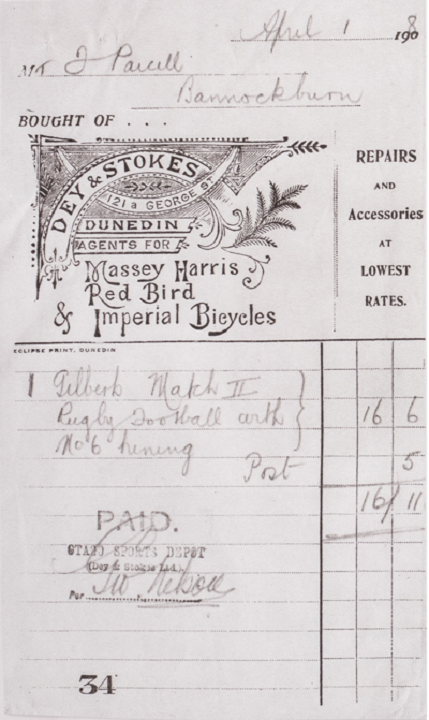 April 1 1908
Mr J Parcell
Bannockburn
BOUGHT OF . . .
DEY & STOKES
121a GEORGE ST
DUNEDIN
AGENTS FOR
Massey Harris
Red Bird
& Imperial Bicycles
REPAIRS
AND
Accessories
AT
LOWEST
RATES.
ECLIPSE PRINT, DUNEDIN
1 Gilbert Match II
Rugby Football with 16 6
No 6 lining
Post 5
16/ 11
PAID.
OTAGO SPORTS DEPOT
(Dey & Stokes Ltd.)
Per Nelson
34